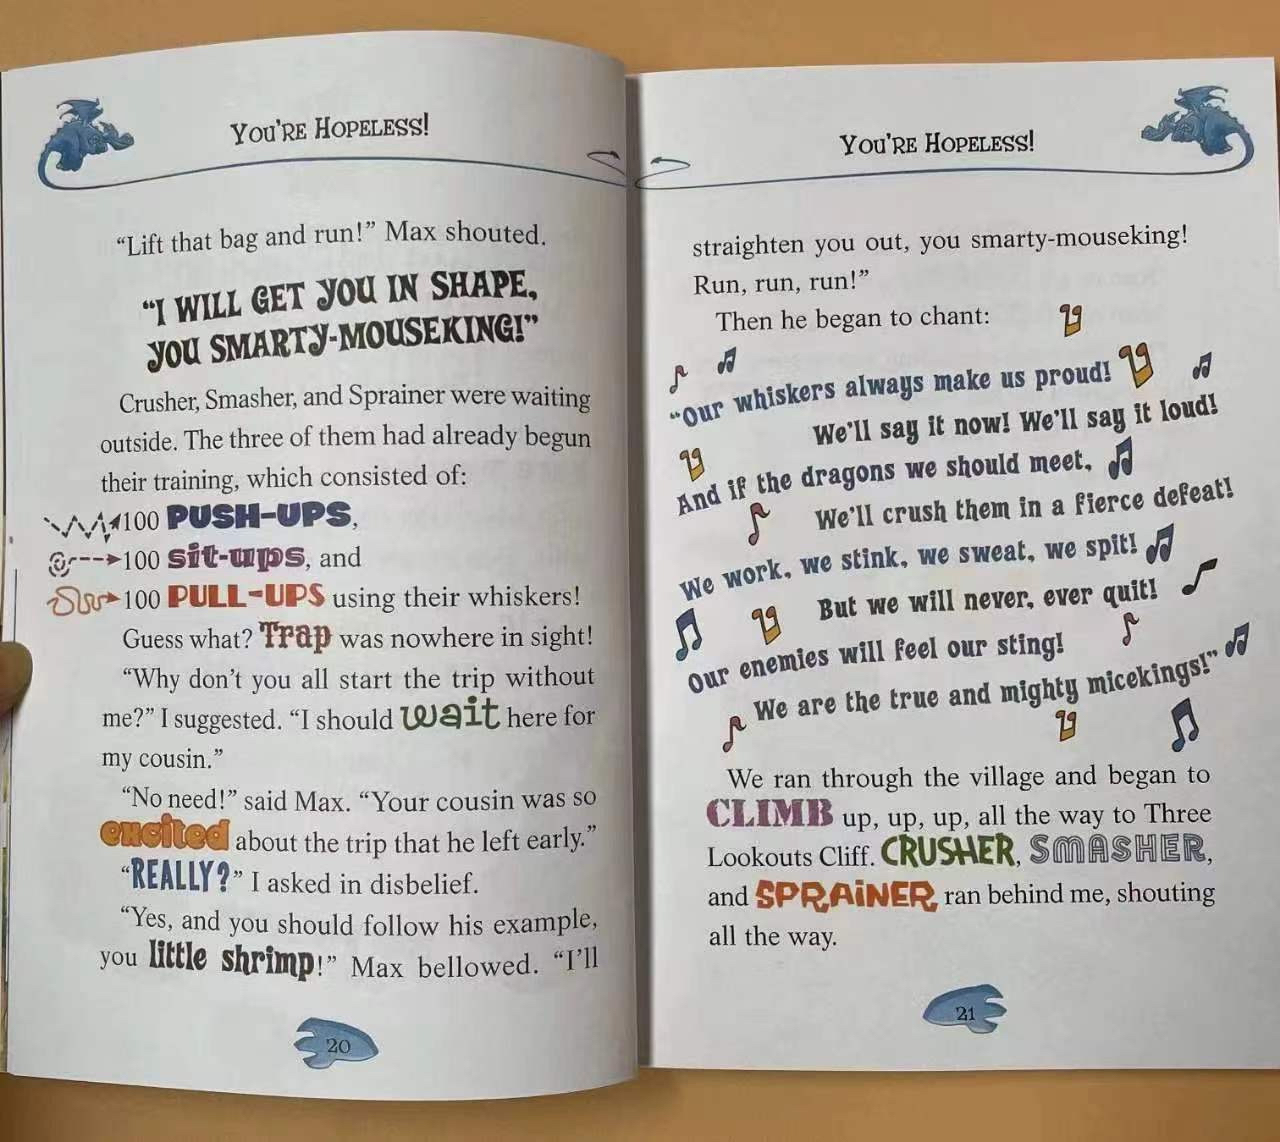 YOU'RE HOPELESS!
“Lift that bag and run!” Max shouted.
“I WILL GET YOU IN SHAPE,
YOU SMARTY-MOUSEKING!”
Crusher, Smasher, and Sprainer were waiting
outside. The three of them had already begun
their training, which consisted of:
100 PUSH-UPS,
100 sit-ups, and
100 PULL-UPS using their whiskers!
Guess what? Trap was nowhere in sight!
“Why don't you all start the trip without
me?” I suggested. “I should wait here for
my cousin.”
“No need!” said Max. “Your cousin was so
excited about the trip that he left early.”
“REALLY?” I asked in disbelief.
“Yes, and you should follow his example,
you little shrimp!” Max bellowed. “I'll
20
YOU'RE HOPELESS!
straighten you out, you smarty-mouseking!
Run, run, run!”
Then he began to chant:
“Our whiskers always make us proud!
We'll say it now! We'll say it loud!
And if the dragons we should meet,
We'll crush them in a fierce defeat!
We work, we stink, we sweat, we spit!
But we will never, ever quit!
Our enemies will feel our sting!
We are the true and mighty micekings!”
We ran through the village and began to
CLIMB up, up, up, all the way to Three
Lookouts Cliff. CRUSHER, SMASHER,
and SPRAINER ran behind me, shouting
all the way.
21